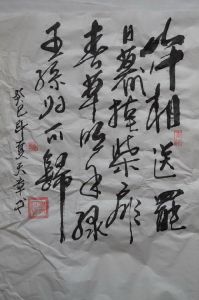 山中相送罷
日暮掩柴扉
春草明年綠
王孫归不歸
癸巳年夏天章书